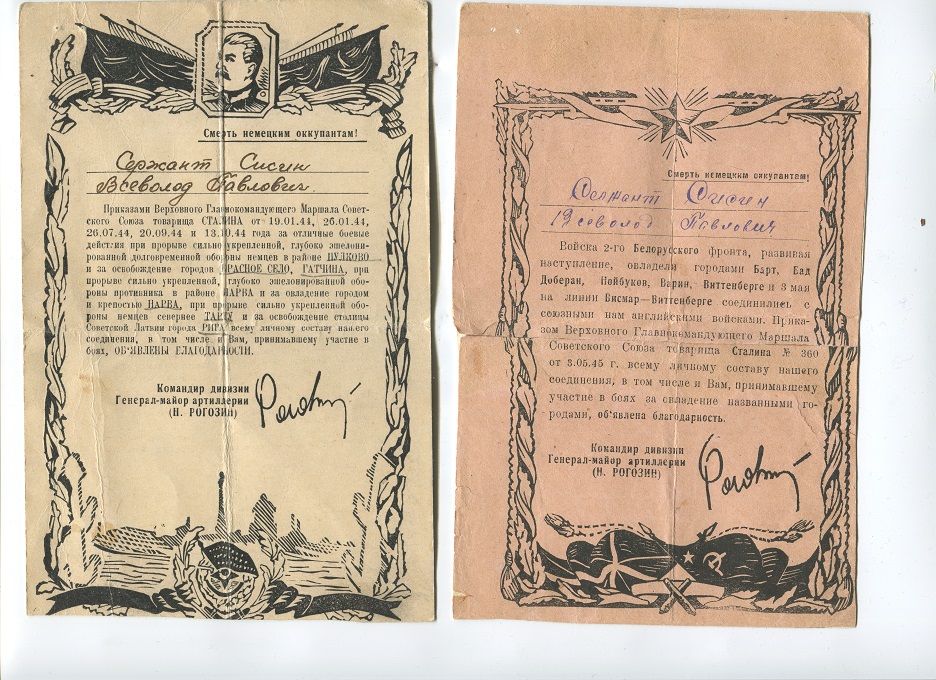 Смерть немецким оккупантам!
Сержант Сисин
Всеволод Павлович.
Приказами Верховного Главнокомандующего Маршала Совет-
ского Союза товарища СТАЛИНА от 19.01.44, 26.01.44,
26.07.44, 20.09.44 и 13.10.44 года за отличные боевые
действия при прорыве сильно укрепленной, глубоко эшелони-
рованной долговременной обороны немцев в районе ПУЛКОВО
и за освобождение городов КРАСНОЕ СЕЛО, ГАТЧИНА, при
прорыве сильно укрепленной, глубоко эшелонированной обо-
роны противника в районе НАРВА и за овладение городом
и крепостью НАРВА, при прорыве сильно укрепленной обо-
роны немцев севернее ТАРТУ и за освобождение столицы
Советской Латвии города РИГА всему личному составу нашего
соединения, в том числе и Вам, принимавшему участие в
боях, ОБ'ЯВЛЕНЫ БЛАГОДАРНОСТИ.
Командир дивизии
Генерал-майор артиллерии
(Н. РОГОЗИН)
Смерть немецким оккупантам!
Сержант Сисин
Всеволод Павлович
Войска 2-го Белорусского фронта, развивая
наступление, овладели городами Барт, Бад
Доберан, Нойбуков, Варин, Виттенберге и 3 мая
на линии Висмар—Виттенберге соединились с
союзными нам английскими войсками. Прика-
зом Верховного Главнокомандующего Маршала
Советского Союза товарища Сталина № 360
от 3.05.45 г. всему личному составу нашего
соединения, в том числе и Вам, принимавшему
участие в боях за овладение названными го-
родами, об'явлена благодарность.
Командир дивизии
Генерал-майор артиллерии
(Н. РОГОЗИН)